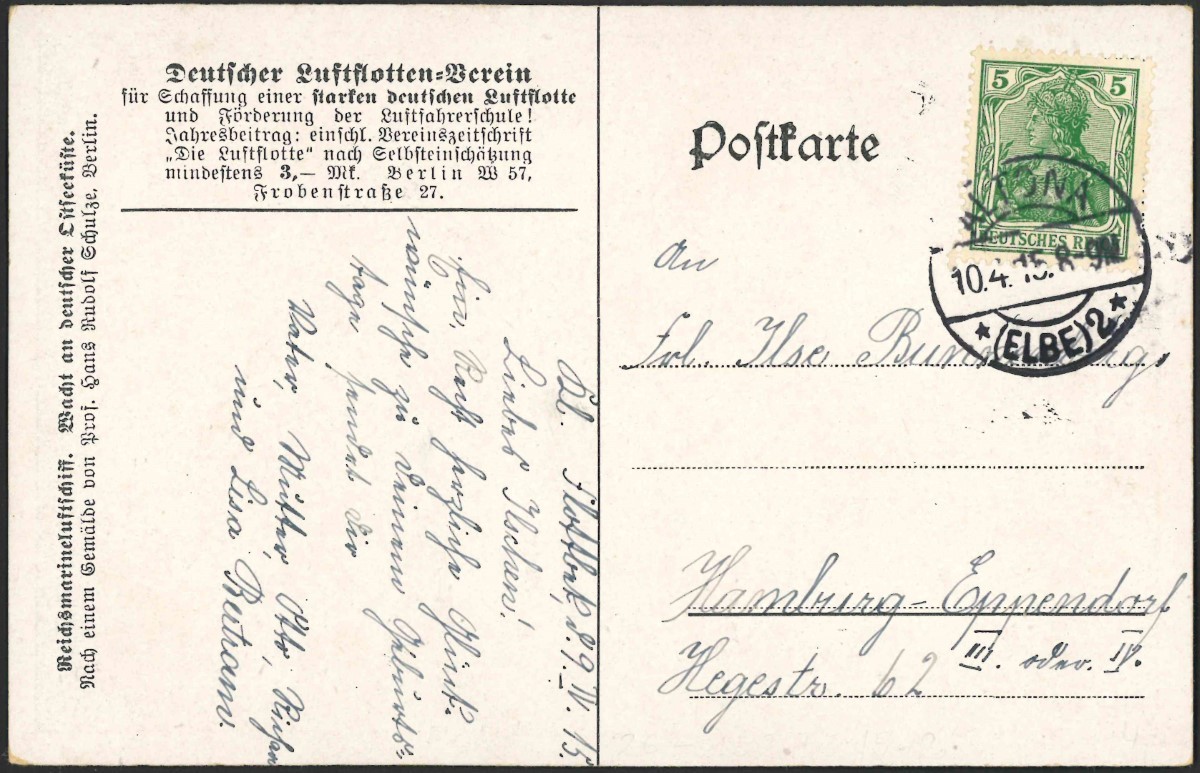 Deutscher Luftflotten-Verein
für Schaffung einer starken deutschen Luftflotte
und Förderung der Luftfahrerschule!
Jahresbeitrag: einschl. Vereinszeitschrift
„Die Luftflotte" nach Selbsteinschätzung
mindestens 3,— Mk. Berlin W 57,
Frobenstraße 27.
Reichsmarineluftschiff. Wacht an deutscher Ostseeküste.
Nach einem Gemälde von Prof. Hans Rudolf Schulze, Berlin.
Kl. Flottbek, d. 9. IV. 15
Liebes Ilschen!
Die herzliche Glück-
wünsche zu deinem Geburts-
tage sendet dir
Vater, Mutter, Otto,
und Lisa
Postkarte
5 5
DEUTSCHES REICH
ALTONA
10.4.15. 8-9N
* (ELBE) 2 *
An
Frl. Ilse
Hamburg-Eppendorf
Hegestr. 62 III. oder IV.